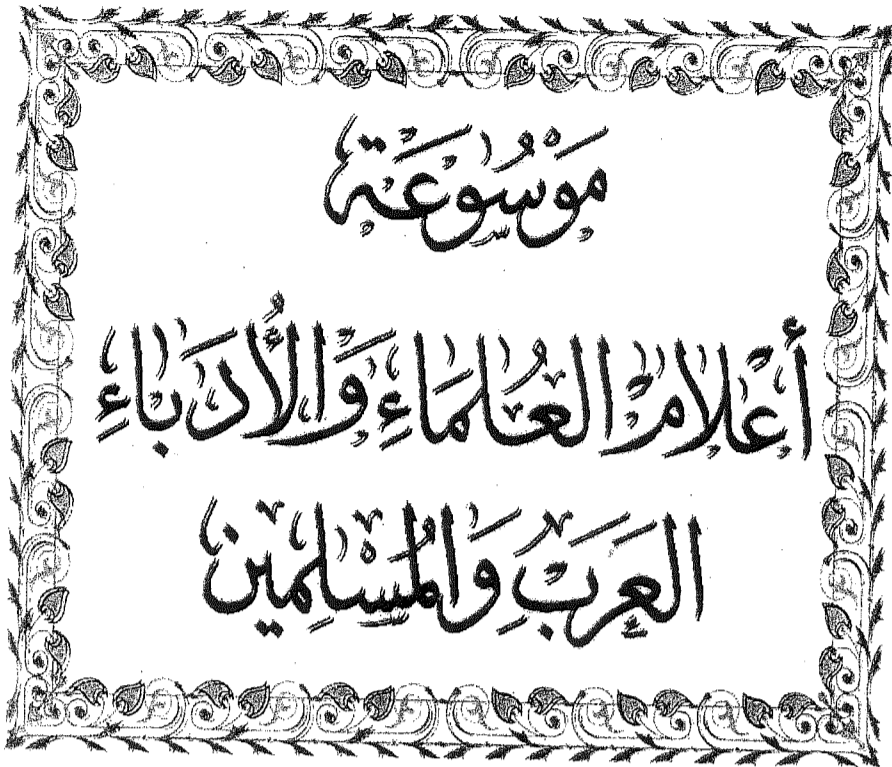 مَوْسُوعَة
أعْلَام العُلَمَاءِ وَالأُدَبَاءِ
العَرَبِ وَالمُسْلِمِين